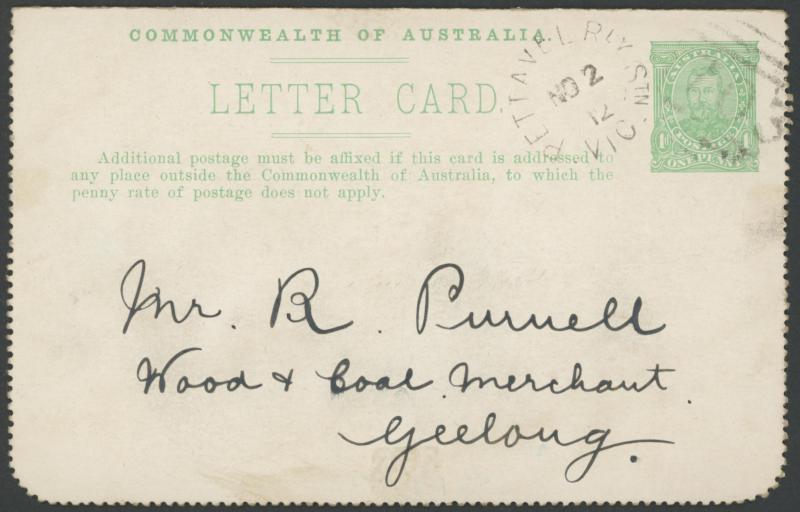 COMMONWEALTH OF AUSTRALIA.
LETTER CARD.
Additional postage must be affixed if this card is addressed to
any place outside the Commonwealth of Australia, to which the
penny rate of postage does not apply.
PETTAVEL RLY STN
NO 2
12
VIC
AUSTRALIA
POSTAGE
ONE PENNY
Mr. R. Purnell
Wood & Coal Merchant.
Geelong.